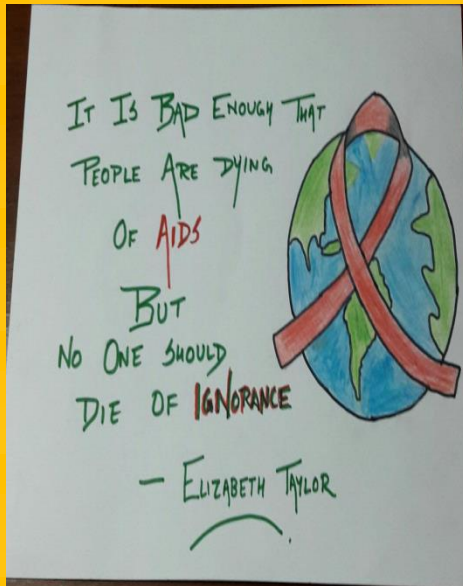 It Is Bad Enough That
People Are Dying
Of AIDS
But
No One Should
Die Of IGNORANCE
— Elizabeth Taylor